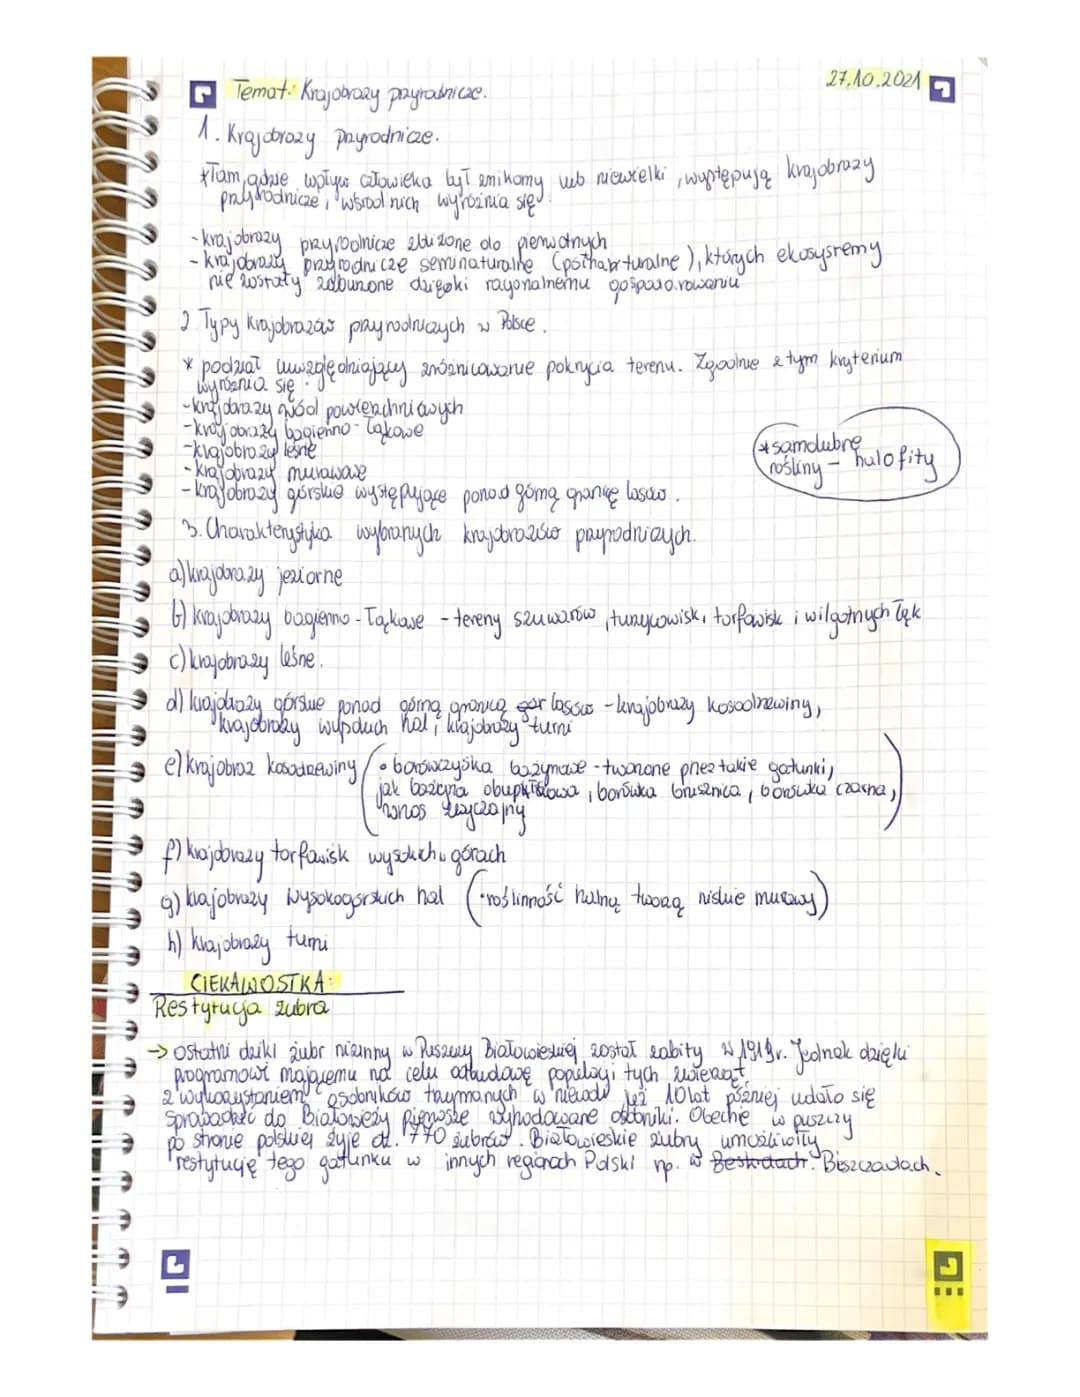 Temat: Krajobrazy przyrodnicze.
27.10.2021
1. Krajobrazy przyrodnicze.
*Tam, gdzie wpływ człowieka był znikomy lub niewielki, występują krajobrazy
przyrodnicze, wśród nich wyróżnia się:
- krajobrazy przyrodnicze zbliżone do pierwotnych
- krajobrazy przyrodnicze seminaturalne ( ), których ekosysremy
nie zostały zaburzone dzięki racjonalnemu gospodarowaniu
2 Typy krajobrazów przyrodniczych w Polsce.
* podział uwzględniający zróżnicowanie pokrycia terenu. Zgodnie z tym kryterium
wyróżnia się:
- krajobrazy wód powierzchniowych
- krajobrazy bagienno-łąkowe
- krajobrazy leśne
- krajobrazy murawowe
- krajobrazy górskie występujące ponad górną granicę lasów.
*samolubre
rośliny - halofity
3. Charakterystyka wybranych krajobrazów przyrodniczych.
a) krajobrazy jeziorne
b) krajobrazy bagienno-łąkowe - tereny szuwarów, turzycowisk, torfowisk i wilgotnych łąk
c) krajobrazy leśne.
d) krajobrazy górskie ponad górną granicą gór lasów - krajobrazy kosodrzewiny,
krajobrazy hal, krajobrazy turni
e) krajobraz kosodrzewiny (• borówczyska bażynowe - tworzone przez takie gatunki,
jak bażyna obupłciowa, borówka brusznica, borówka czarna,
wrzos zwyczajny)
f) krajobrazy torfowisk wysokich w górach
g) krajobrazy wysokogórskich hal (• roślinność halną tworzą niskie murawy)
h) krajobrazy turni
CIEKAWOSTKA:
Restytucja żubra
→ ostatni dziki żubr nizinny w Puszczy Białowieskiej został zabity w 1919r. Jednak dzięki
programowi mającemu na celu odbudowę populacji tych zwierząt,
z wykorzystaniem osobników trzymanych w niewoli już 10 lat później udało się
sprowadzić do Białowieży pierwsze wyhodowane osobniki. Obecnie w puszczy
po stronie polskiej żyje ok. 770 żubrów. Białowieskie żubry umożliwiły
restytucję tego gatunku w innych regionach Polski np. w Beskidach. Bieszczadach.